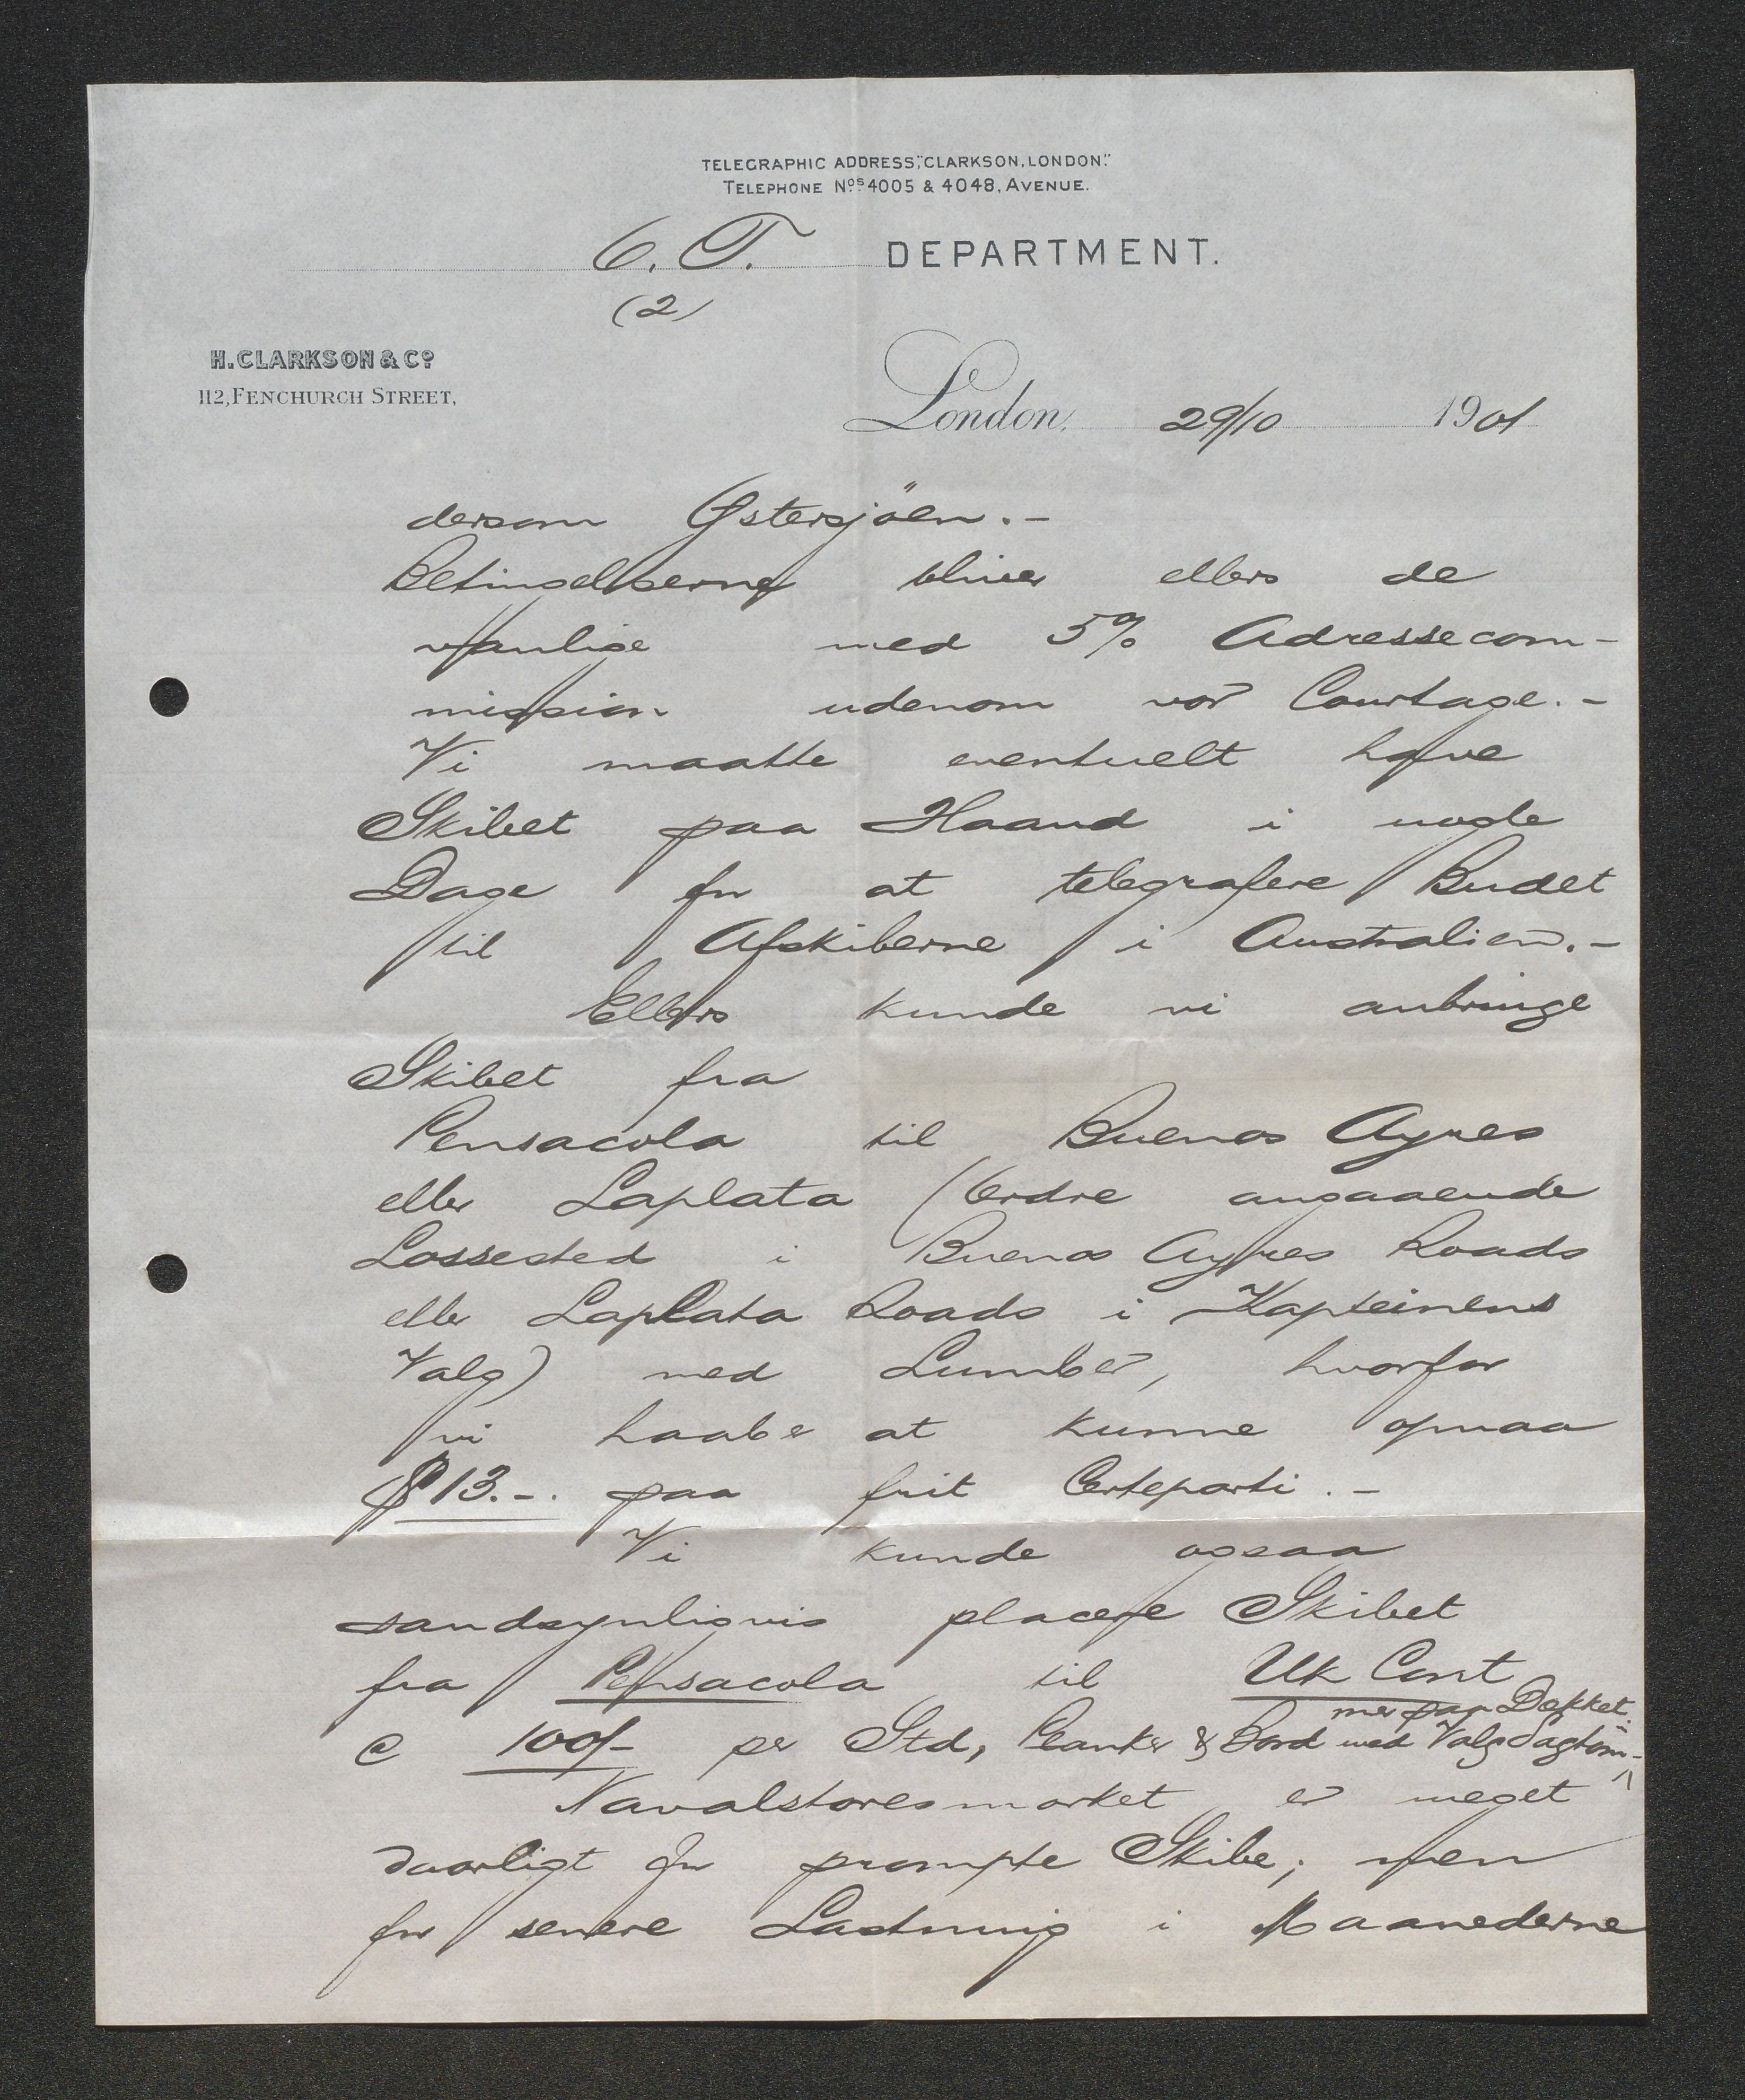 TELEGRAPHIC ADDRESS, "CLARKSON, LONDON."
TELEPHONE Nos 4005 & 4048, AVENUE.
C. T. DEPARTMENT.
(2)
H. CLARKSON & Co
112, FENCHURCH STREET,
London, 29/10 1901
dersom Østersjöen.-
Betingelserne bliver ellers de
vanlige med 5% Adressecom-
mission udenom vor Courtage.-
Vi maatte eventuelt have
Skibet paa Haand i nogle
Dage for at telegrafere Budet
til Afskiberne i Australien.-
Ellers kunde vi anbringe
Skibet fra
Pensacola til Buenos Ayres
eller Laplata (Ordre angaaende
Lossested i Buenos Ayres Roads
eller Laplata Roads i Kapteinens
Valg) med Lumber, hvorfor
vi haaber at kunne opnaa
$ 13.-. paa frit Certeparti.-
Vi kunde ogsaa
sandsynligvis placere Skibet
fra Pensacola til Uk Cont
@ 100/- per Std, Planker & Bord med Valg Sagtöm-
mer paa Dækket.
Navalstoresmarket er meget
daarligt for prompte Skibe; men
for senere Lastning i Maanederne